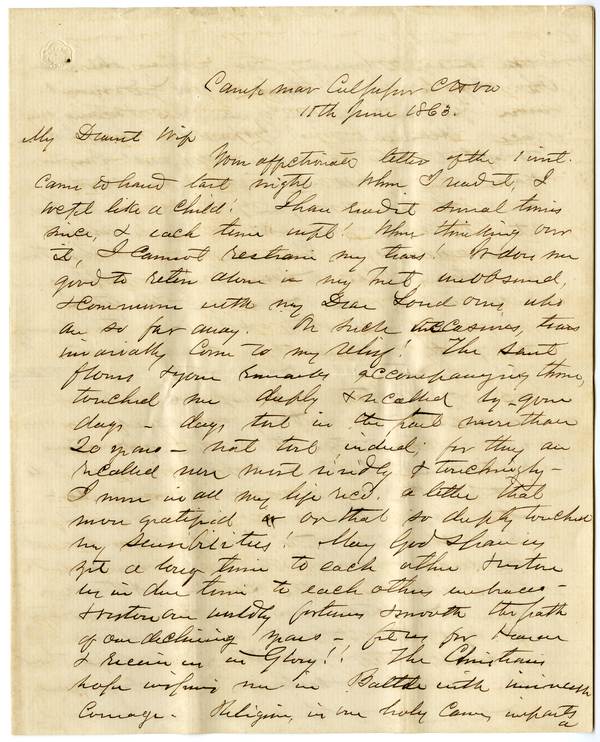 Camp near Culpeper CH Va
15th June 1863.
My Dearest Wife
Your affectionate letter of the 1 inst.
came to hand last night When I read it, I
wept like a child! I have read it several times
since, & each time wept! When thinking over
it, I cannot restrain my tears! It does me
good to retire alone in my tent, unobserved,
& commune with my Dear Loved ones, who
are so far away. On such occasions, tears
invariably come to my relief! The
flowers & your remarks accompanying them,
touched me deeply & recalled by-gone
days – days lost in the past more than
20 years – not lost indeed, for they are
recalled now most vividly & touchingly –
I never in all my life recd. a letter that
more gratified or one that so deeply touched
my sensibilities! May God spare us
yet a long time to each other & restore
us in due time to each others embraces –
& restore our worldly fortunes & smooth the path
of our declining years – fit us for Heaven
& receive us in Glory!! The Christians
hope inspires me in Battle with
Courage – Religion, in our holy Cause, imparts
a